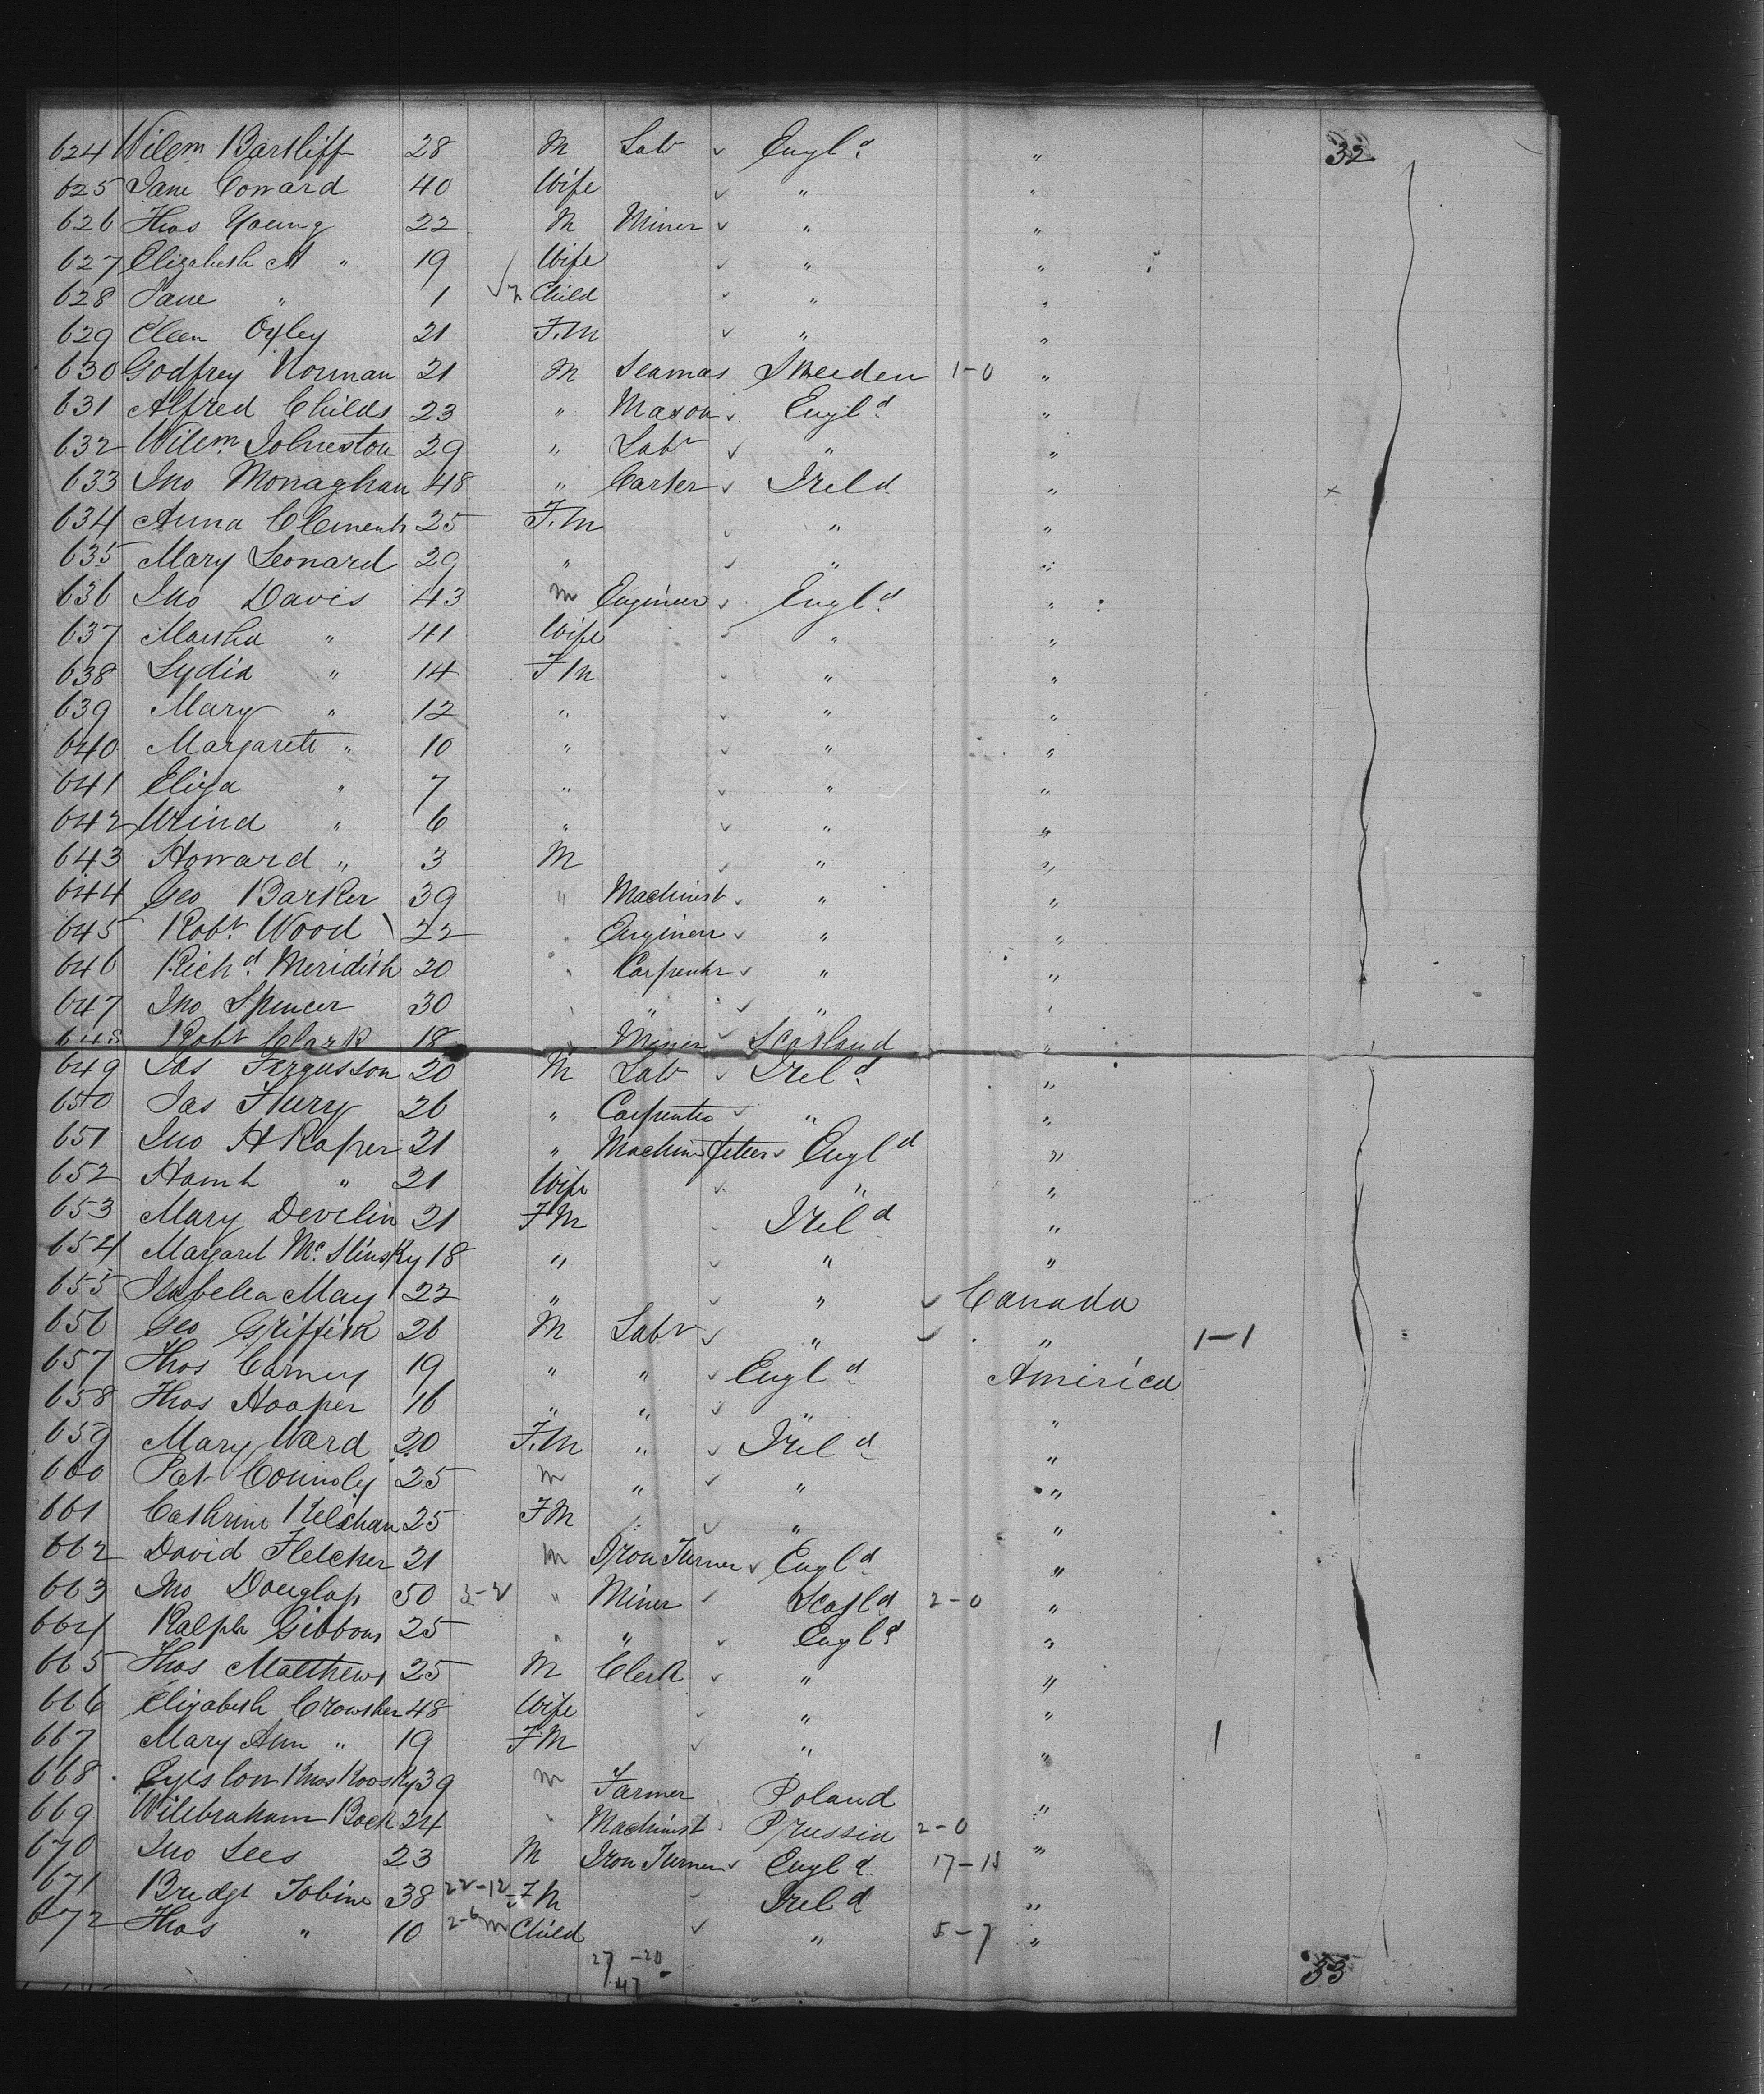 624 Wilem Bartliff 28 M Labr Engld " 32
625 Jane Coward 40 Wife " "
626 Thos Young 22 M Miner " "
627 Elizabeth M " 19 Wife " "
628 Jane " 1 Child " "
629 Eleen Oxley 21 F.M " "
630 Godfrey Norman 21 M Seaman Sweeden 1-0 "
631 Alfred Childs 23 " Mason Engld "
632 Wilem Johneston 29 " Labr " "
633 Jno Monaghan 48 " Carter Ireld "
634 Anna Clements 25 F.M " "
635 Mary Leonard 29 " " "
636 Jno Davis 43 M Engineer Engld "
637 Martha " 41 Wife " "
638 Lydia " 14 F M " "
639 Mary " 12 " " "
640 Margarett " 10 " " "
641 Eliza " 7 " " "
642 " 6 " " "
643 Howard " 3 M " "
644 Geo Barker 39 " Machinist " "
645 Robt Wood 22 Engineer " "
646 Richd Meridith 20 Carpenter " "
647 Jno Spencer 30 " " "
648 Robt Clark 18 Miner Scotland "
649 Jas Fergusson 20 M Labr Ireld "
650 Jas Flury 26 " Carpenter " "
651 Jno H Raper 21 " Machine fitter Engld "
652 Hamh " 21 Wife " "
653 Mary Develin 21 F M Ireld "
654 Margaret 18 " " "
655 Isabella May 22 " " Canada
656 Geo Griffith 26 M Labr " " 1-1
657 Thos Carney 19 " " Engld America
658 Thos Hooper 16 " " " "
659 Mary Ward 20 F.M " Ireld "
660 Pat Connoly 25 M " " "
661 Cathrine 25 F M " "
662 David Fletcher 21 M Iron Turner Engld "
663 Jno Douglass 50 " Miner Scotld 2-0 "
664 Ralph Gibbons 25 " " Engld "
665 Thos Matthews 25 M Clerk " "
666 Elizabeth Crowther 48 Wife " "
667 Mary Ann " 19 F.M " "
668 39 M Farmer Poland "
669 Wilebraham Bock 24 Machinist Prussia 2-0 "
670 Jno Lees 23 M Iron Turner Engld "
671 Bridgt Tobine 38 22-12 F M Ireld "
672 Thos " 10 2-6 M Child " 5-7 "
27-20
47
33